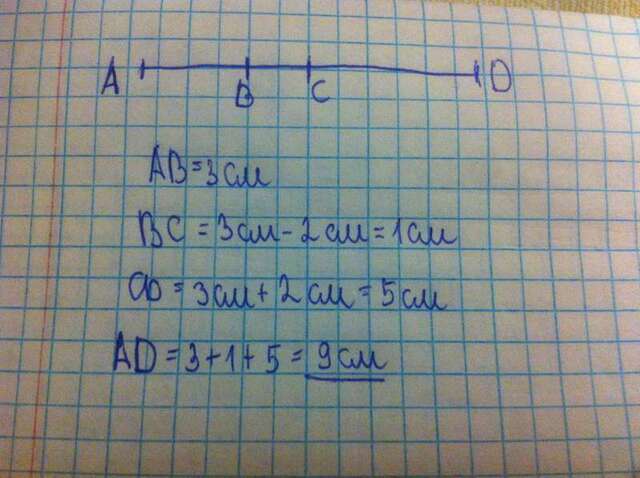 A B C D
AB = 3 см
BC = 3 см - 2 см = 1 см
CD = 3 см + 2 см = 5 см
AD = 3 + 1 + 5 = 9 см